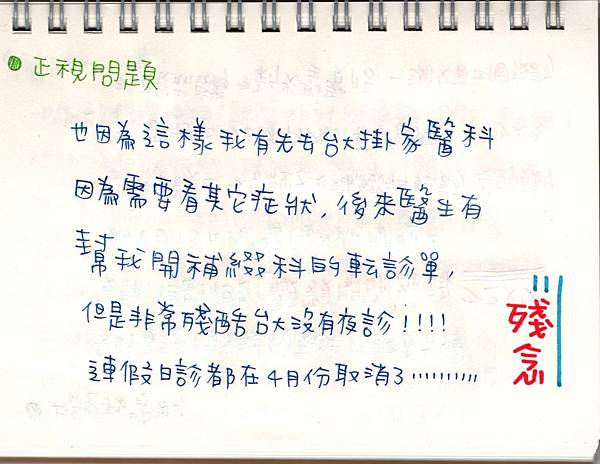 正視問題
也因為這樣我有先去台大掛家醫科
因為需要看其它症狀,後來醫生有
幫我開補綴科的転診單,
但是非常殘酷台大沒有夜診!!!!
連假日診都在4月份取消了…………
殘念